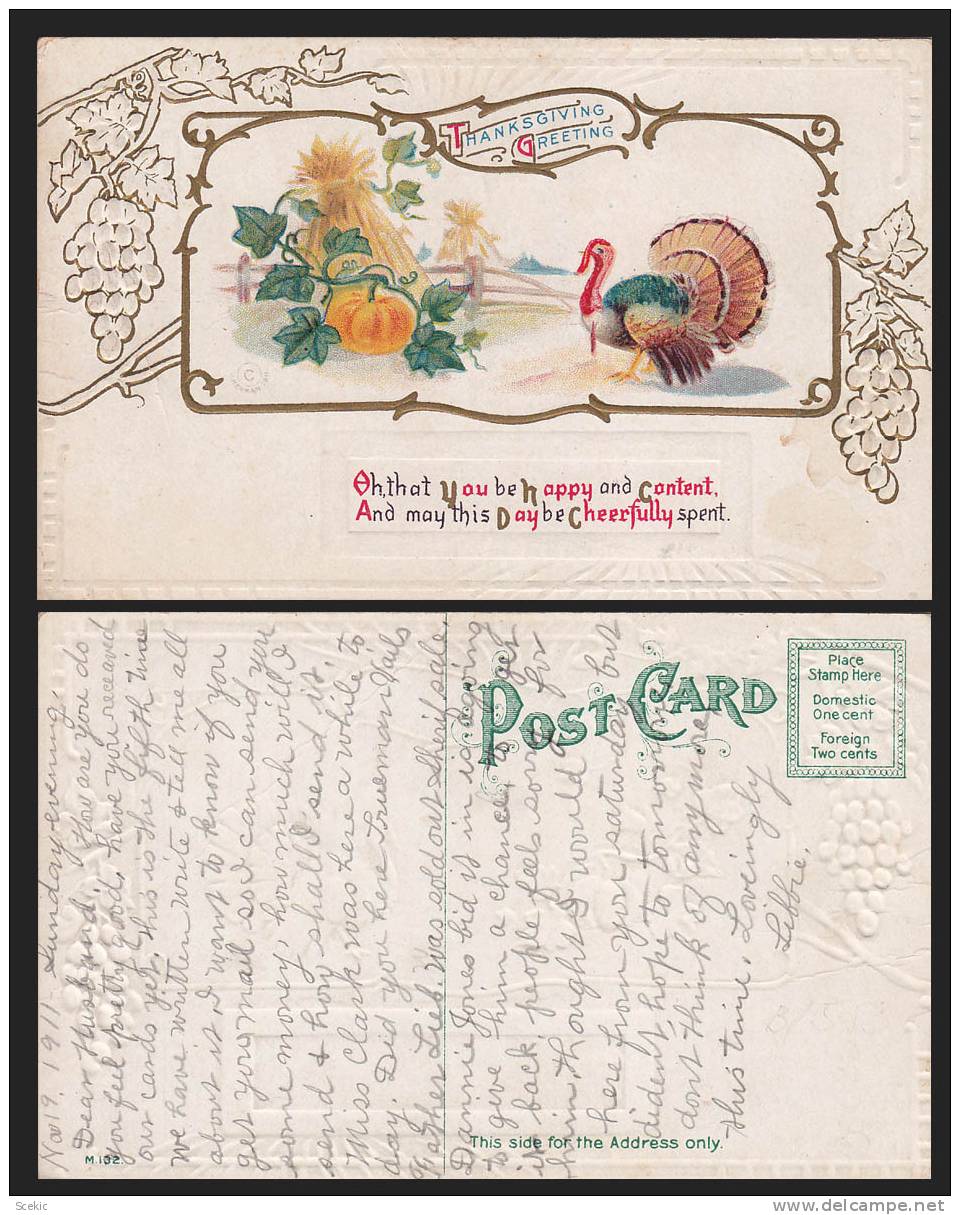 THANKSGIVING
GREETING
Oh, that you be happy and content,
And may this Day be Cheerfully spent.
POST CARD
Place
Stamp Here
Domestic
One cent
Foreign
Two cents
This side for the Address only.
M.132.
Nov 19. 1911. Sunday evening,
Dear Husband, How are you do
you feel pretty good, have you receaved
our cards yet, this is the fifth time
we have written write & tell me all
about it I want to know if you
get your mail so I can send you
some money, how much will I
send & how shall I send it.
Miss Clark was here a while to
day. Did you here Trueman Vails
Father Lieb. was sold out Shirifs sale
Dannie Jones bid it in is going
to give him a chance to get
it back, people feels sorry for
him, thought I would
here from you saturday but
dident hope to tomorrow
dont think of anymore
this time, Loveingly
Libbie.
Scekic
www.delcampe.net